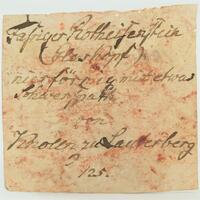 Fasriger Rotheisenstein
(Glaskopf)
nierförmig mit etwas
Schwerspath
von
Knolen zu Lauterberg
125.